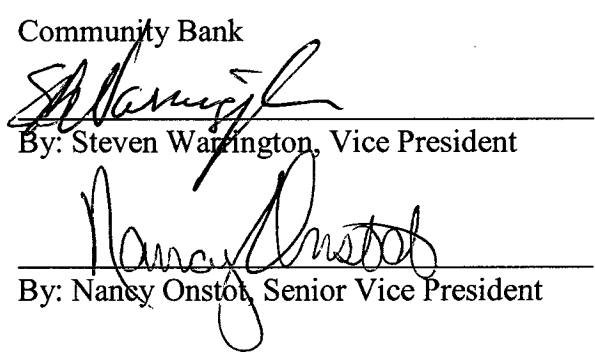 Community Bank
S Warrington
By: Steven Warrington, Vice President
Nancy Onstot
By: Nancy Onstot, Senior Vice President